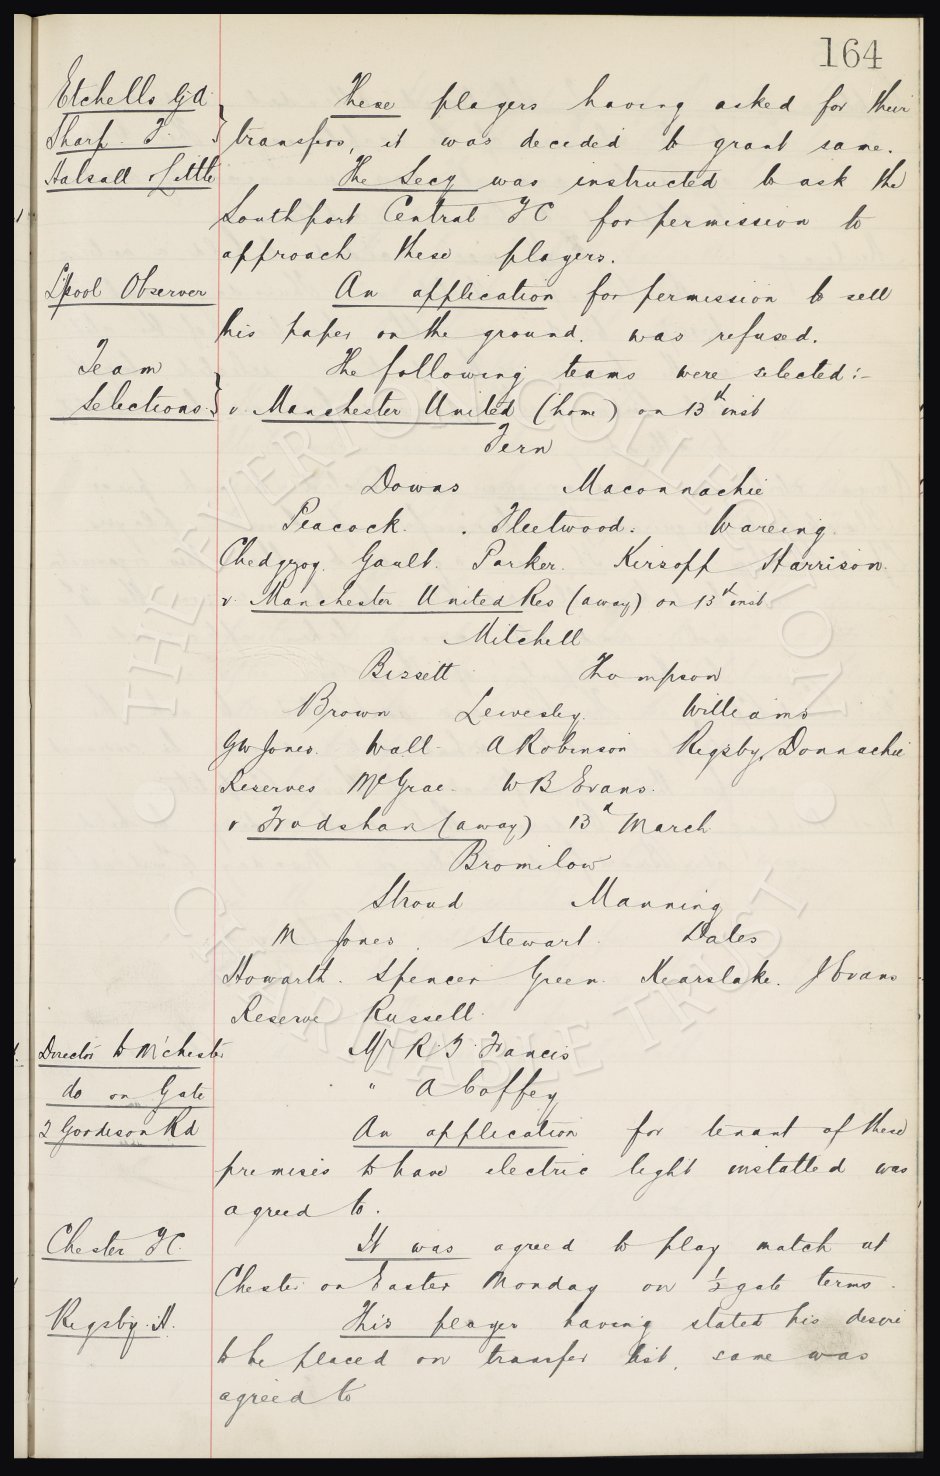 164
Etchells G.A.
These players having asked for their
Sharp. J.
transfers, it was decided to grant same.
Halsall & Little
The Secy was instructed to ask the
Southport Central F C for permission to
approach these players.
L'pool Observer
An application for permission to sell
this paper on the ground. was refused.
Team
The following teams were selected :-
Selections.
v. Manchester United (home) on 13th inst
Fern
Downs Maconnachie
Peacock. Fleetwood. Wareing
Chedgzoy. Gault. Parker. Kirsopp Harrison.
v. Manchester United Res (away) on 13th inst
Mitchell
Bissett Thompson
Brown Lewesley. Williams
G W Jones. Wall. A Robinson Rigsby, Donnachie
Reserves McGrae. W B Evans.
v Frodsham (away) 13th March
Bromilow
Stroud Manning
M Jones. Stewart. Dales
Howarth. Spencer Green. Kearslake. J Evans
Reserve Russell.
Director to M'chester
Mr R. F. Francis
do on Gate
" A Coffey
2 Goodison Rd
An application for tenant of these
premises to have electric light installed was
agreed to.
Chester F C.
It was agreed to play match at
Chester on Easter Monday on 1/2 gate terms.
Rigsby. H.
This player having stated his desire
to be placed on transfer list, same was
agreed to
THE EVERTON COLLECTION
CHARITABLE TRUST